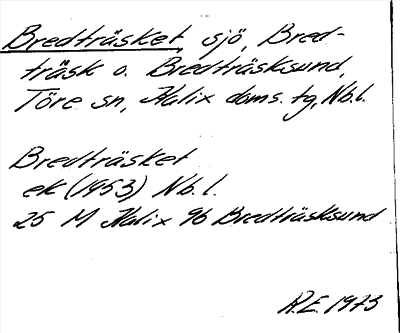 Bredträsket, sjö, Bred-
träsk o. Bredträsksund,
Töre sn, Kalix doms. tg, Nb.l.
Bredträsket
ek (1953) Nb.l.
25 M Kalix 96 Bredträsksund
R.E. 1973